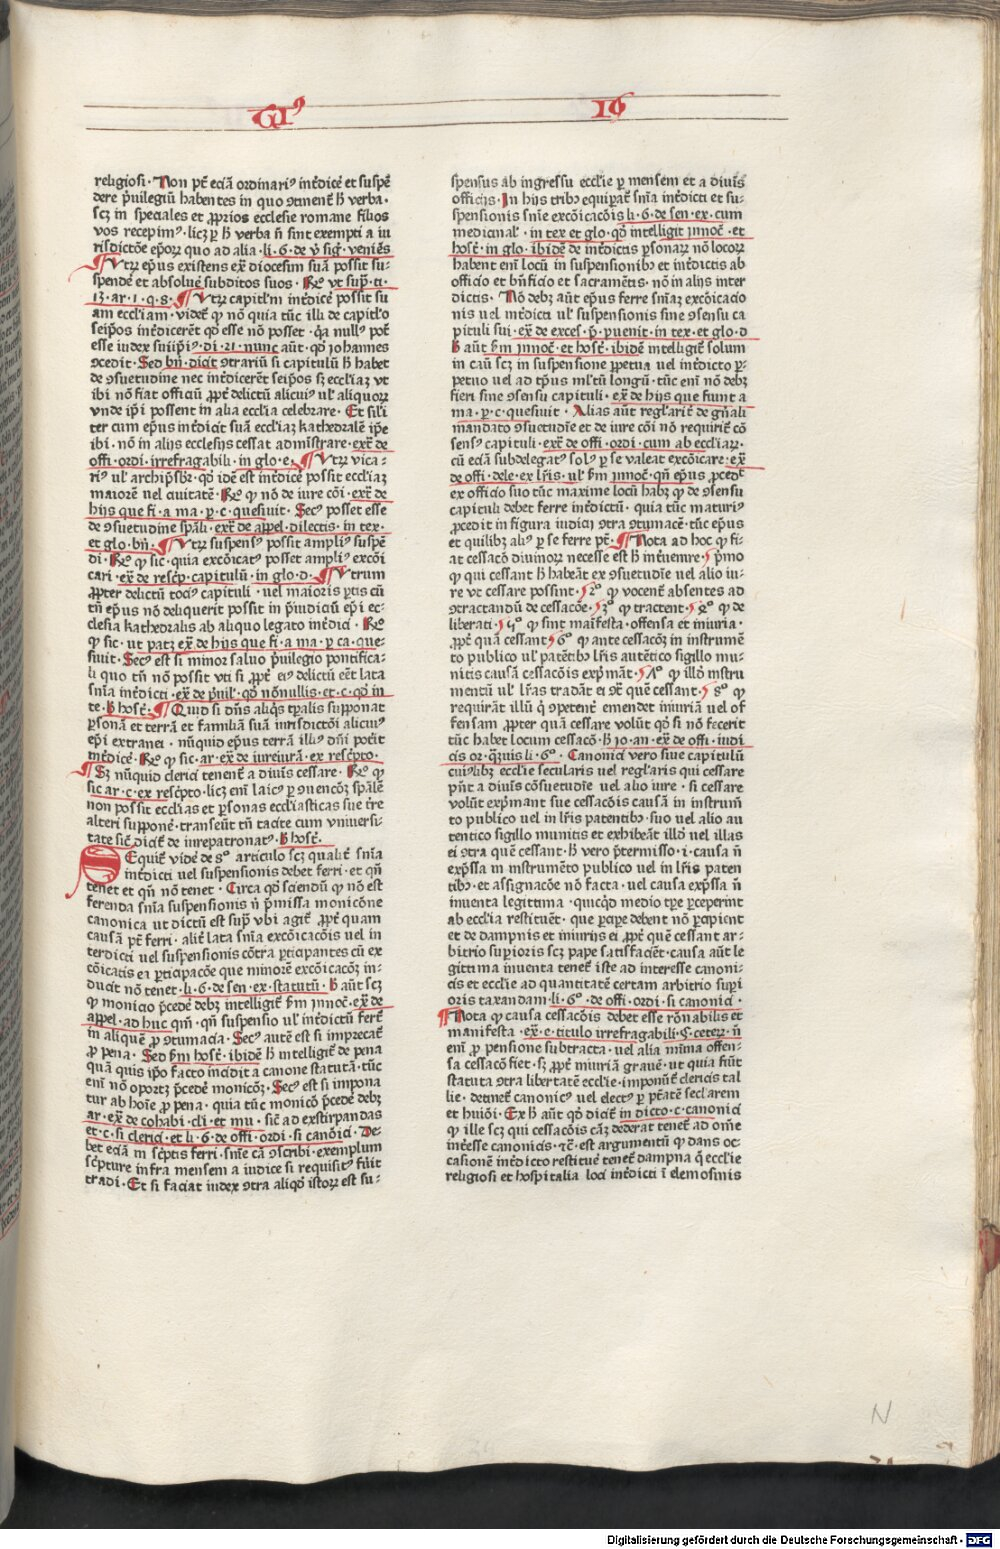 GI⁹ 16
religiosi · Non pn̄t eciā ordinariꝰ int̄dicē et suspē
dere p̄uilegiū habentes in quo ↄtinent᷑ ħ verba ·
scꝫ in speciales et ꝓprios ecclesie romane filios
vos recepimꝰ · licꝫ ꝑ ħ verba n̄ sint exempti a iu
risdictōe epōꝝ quo ad alia · li · 6 · de v̄ sig̃ · veniēs
¶ Vtꝝ ep̄us existens ex̄ diocesim suā possit su⸗
spendē et absoluē subditos suos · Rō vt sup̄ · ti ·
13 · ar · 1 · q · 8 · ¶ Vtꝝ capitl'm int̄dicē possit su
am eccl'iam · videt᷑ ꝙ nō quia tūc illi de capitl'o
seip̄os int̄dicerēt qd̄ esse nō posset · q̄a nullꝰ pōt
esse iudex sui ip̄iꝰ · di · 21 · nunc aūt · qd̄ iohannes
ↄcedit · Sed bn̄ · dicit ↄtrariū si capitulū ħ habet
de ↄsuetudine nec int̄dicerēt seip̄os sꝫ eccl'iaꝫ vt
ibi nō fiat officiū ꝓpt̄ delictū alicuiꝰ ul' aliquoꝝ
vnde ip̄i possent in alia eccl'ia celebrare · Et sil'i
ter cum ep̄us int̄dicit suā eccl'iaꝫ kathedralē ip̄e
ibi · nō in alijs ecclesijs cessat adm̄istrare · ext̄ de
offi · ordi · irrefragabili · in glo · e · ¶ Vtꝝ vica⸗
riꝰ ul' archip̄sbr̄ · qd̄ idē est int̄dicē possit eccl'iaꝫ
maiorē uel ciuitatē · Rō ꝙ nō de iure cōi · ext̄ de
hijs que fi · a ma · ꝑ · c · quesiuit · Secꝰ posset esse
de ↄsuetudine spāli · ext̄ de appel · dilectis · in tex ·
et glo · bn̄ · ¶ Vtꝝ suspensꝰ possit ampliꝰ suspē
di · Rō ꝙ sic · quia excōicatꝰ posset ampliꝰ excōi
cari · ex̄ de resc̄p · capitulū · in glo · d · ¶ Vtrum
ꝓpter delictū tociꝰ capituli · uel maioris ꝑtis cū
tn̄ ep̄us nō deliquerit possit in p̄iudiciū ep̄i ec⸗
clesia kathedralis ab aliquo legato int̄dici · Rō
ꝙ sic · ut patꝫ ex̄ de hijs que fi · a ma · ꝑ ca · que⸗
siuit · Secꝰ est si minor saluo p̄uilegio pontifica⸗
li quo tn̄ nō possit vti si ꝓpt̄ eiꝰ delictū eēt lata
snīa int̄dicti · ex̄ de p̄uil' · qd̄ nōnullis · et · c · qd̄ in
te · ħ host̄ · ¶ Quid si dn̄s aliqꝰ tp̄alis supponat
ꝑsonā et terrā et familiā suā iurisdictōi alicuiꝰ
ep̄i extranei · nūquid ep̄us terrā illiꝰ dn̄i pot̄it
int̄dicē · Rō ꝙ sic · ar · ex̄ de iureiurā · ex resc̄pto ·
¶ Sꝫ nūquid clerici tenent᷑ a diuis cessare · Rō ꝙ
sic ar · c · ex resc̄pto · licꝫ em̄ laicꝰ ꝑ ↄuencōꝫ spālē
non possit eccl'ias et ꝑsonas eccl'iasticas sue t̄re
alteri supponē · transeūt tn̄ tacite cum vniuersi⸗
tate sic̄ dicit᷑ de iurepatronatꝰ · ħ host̄ ·
SEquit᷑ vidē de 8º articulo scꝫ qualit̄ snīa
int̄dicti uel suspensionis debet ferri · et qn̄
tenet et qn̄ nō tenet · Circa qd̄ sciendū ꝙ nō est
ferenda snīa suspensionis n̄ p̄missa monicōne
canonica ut dictū est sup̄ vbi agit᷑ ꝓpt̄ quam
causā pt̄ ferri · alit̄ lata snīa excōicacōis uel in
terdicti uel suspensionis cōtra ꝑticipantes cū ex
cōicatis ei ꝑticipacōe que minorē excōicacōꝫ in⸗
ducit nō tenet · li · 6 · de sen · ex · statutū · ħ aūt scꝫ
ꝙ monicio p̄cedē debꝫ intelligit᷑ ẜm jnnoc̄ · ex̄ de
appel · ad huc qm̄ · qn̄ suspensio ul' int̄dictū fert᷑
in aliquē ꝓ ↄtumacia · Secꝰ autē est si imprecat᷑
ꝓ pena · Sed ẜm host̄ · ibidē ħ intelligit᷑ de pena
quā quis ip̄o facto incidit a canone statutā · tūc
em̄ nō oportꝫ p̄cedē monicōꝫ · Secꝰ est si impona
tur ab hoīe ꝓ pena · quia tūc monicō p̄cedē debꝫ
ar · ex̄ de cohabi · cl'i · et mu · sic̄ ad exstirpandas
et · c · si clerici · et li · 6 · de offi · ordi · si canōici · De⸗
bet eciā in sc̄ptis ferri · snīe cā ↄscribi · exemplum
sc̄pture infra mensem a iudice si requisitꝰ fūit
tradi · Et si faciat iudex ↄtra aliqd̄ istoꝝ est su⸗
spensus ab ingressu eccl'ie ꝑ mensem et a diuīs
officijs · In hijs tribꝰ equiparat᷑ snīa int̄dicti et su⸗
spensionis snīe excōicacōis li · 6 · de sen · ex · cum
medicinal' · in tex et glo · qd̄ intelligit jnnoc̄ · et
host̄ · in glo · ibidē de int̄dictis ꝑsonaꝝ nō locoꝝ
habent em̄ locū in suspensionibꝰ et int̄dictis ab
officio et bn̄ficio et sacramētis · nō in alijs inter
dictis · Nō debꝫ aūt ep̄us ferre snīaꝫ excōicacio
nis uel int̄dicti ul' suspensionis sine ↄsensu ca
pituli sui · ex̄ de exces · p̄ · puenit · in tex · et glo · d
ħ aūt ẜm jnnoc̄ · et host̄ · ibidē intelligit᷑ solum
in cāu scꝫ in suspensione ꝑpetua uel int̄dicto ꝑ⸗
petuo uel ad tp̄us ml'tū longū · tūc em̄ nō debꝫ
fieri sine ↄsensu capituli · ex̄ de hijs que fiunt a
ma · ꝑ · c · quesiuit · Alias aūt regl'arit̄ de gn̄ali
mandato ↄsuetudīe et de iure cōi nō requirit᷑ cō
sensꝰ capituli · ext̄ de offi · ordi · cum ab eccl'iaꝝ ·
cū eciā subdelegatꝰ solꝰ ꝑ se valeat excōicare · ex̄
de offi · dele · ex lr̄is · ul' ẜm jnnoc̄ · qn̄ ep̄us ꝓcedit
ex officio suo tūc maxime locū habꝫ ꝙ de ↄsensu
capituli debet ferre int̄dictū · quia tūc maturiꝰ
ꝓcedit in figura iudicij ↄtra ↄtumacē · tūc ep̄us
et quilibꝫ aliꝰ ꝑ se ferre pōt · ¶ Nota ad hoc ꝙ fi⸗
at cessacō diuinoꝝ necesse est ħ int̄uenire · p̄mo
ꝙ qui cessant ħ habeāt ex ↄsuetudīe uel alio iu⸗
re vt cessare possint · 2º ꝙ vocent᷑ absentes ad
ↄtractandū de cessacōe · 3º ꝙ tractent · 4º ꝙ de
liberati · 5º ꝙ sint manifesta · offensa et iniuria ·
ꝓpt̄ quā cessant · 6º ꝙ ante cessacōꝫ in instrumē
to publico ul' patētibꝰ lr̄is autētico sigillo mu⸗
nitis causā cessacōis exp̄māt · 7º ꝙ illd̄ instru
mentū ul' lr̄as tradāt ei ↄt̄ quē cessant · 8º ꝙ
requirāt illū q̇ ↄpetent᷑ emendet iniuriā uel of
fensam ꝓpter quā cessare volūt qd̄ si nō fecerit
tūc habet locum cessacō · ħ jo · an · ex̄ de offi · iudi
cis or · q̄ꝫuis li · 6º · Canonici vero siue capitulū
cuiꝰlibꝫ eccl'ie secularis uel regl'aris qui cessare
pn̄t a diuīs cōsuetudīe uel alio iure · si cessare
volūt exp̄mant sue cessacōis causā in instrum̄
to publico uel in lr̄is patentibꝰ · suo uel alio au
tentico sigillo munitis et exhibeāt illd̄ uel illas
ei ↄtra quē cessant · ħ vero p̄termisso · i · causa n̄
exp̄ssa in instrumēto publico uel in lr̄is paten
tibꝰ · et assignacōe nō facta · uel causa exp̄ssa n̄
inuenta legittima · quicqd̄ medio tp̄e ꝑceperint
ab eccl'ia restituēt · que ꝑcipe debent nō ꝑcipient
et de dampnis et iniurijs ei ꝓpt̄ quē cessant ar⸗
bitrio supioris scꝫ pape satisfaciēt · causa aūt le
gittima inuenta tenet᷑ iste ad interesse canoni⸗
cis et eccl'ie ad quantitatē certam arbitrio supi
oris taxandam · li · 6º · de offi · ordi · si canonici ·
¶ Nota ꝙ causa cessacōis debet esse rōnabilis et
manifesta · ex̄ · e · titulo irrefragabili · §· ceteꝝ · n̄
em̄ ꝓ pensione subtracta · uel alia mīma offen⸗
sa cessacō fiet · sꝫ ꝓpt̄ iniuriā grauē · ut quia fiūt
statuta ↄtra libertatē eccl'ie · imponūt᷑ clericis tal
lie · detinet᷑ canonicꝰ uel electꝰ ꝑ p̄tatē sec̄larem
et huiōi · Ex ħ aūt qd̄ dicit᷑ in dicto · c · canonici
ꝙ ille scꝫ qui cessacōis cāꝫ dederat tenet᷑ ad om̄e
int̄esse canonicis · ⁊c̄ · est argumentū ꝙ dans oc⸗
casionē int̄dicto restituē tenet᷑ dampna q̄ eccl'ie
religiosi et hospitalia loci int̄dicti ī elemosinis
N
Digitalisierung gefördert durch die Deutsche Forschungsgemeinschaft · DFG